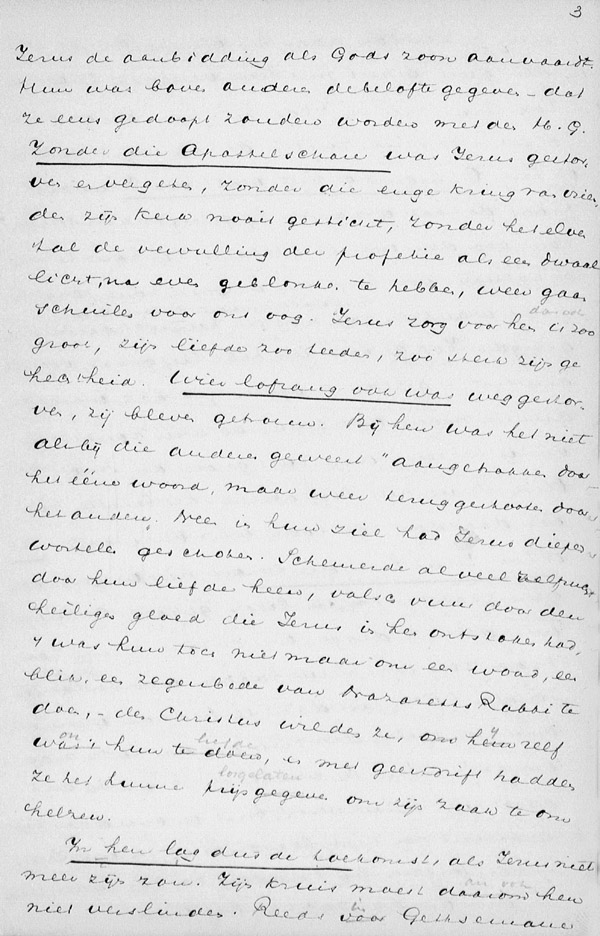 3
Jezus de aanbidding als Gods zoon aanvaardt.
Hun was boven anderen de belofte gegeven – dat
ze eens gedoopt zouden worden met den H. G.
Zonder die Apostelschaar was Jezus gestor-
ven en vergeten, zonder die enge kring van vrien-
den zijn kerk nooit gesticht, zonder het elven
tal de vervulling der profetie als een dwaal
licht, na even geblonken te hebben, weer gaan
schuilen voor ons oog. Jezus zorg voor hen is zoo
groot, zijn liefde zoo teeder, zoo sterk zijn ge
hechtheid. Wier lofzang ook was weggestor-
ven, zij bleven getrouw. Bij hen was het niet
als bij die anderen geweest "aangetrokken door
het ééne woord, maar weer teruggestooten door
het andere. Neen in hun ziel had Jezus dieper
wortelen geschoten. Schemerde al veel zelfzucht
door hun liefde heen, valsch vuur door den
heiligen gloed die Jezus in hen ontstoken had,
't was hun toch niet maar om een woord, een
blik, een zegenbede van Nazareths Rabbi te
doen, – den Christus wilden ze, om hem zelf
was 't hun te doen, en met geestdrift hadden
losgelaten
ze het hunne prijsgegeven om zijn zaak te om
helzen.
In hen lag dus de toekomst, als Jezus niet
meer zijn zou. Zijn kruis moest daarom hen
niet verslinden. Reeds vóór Gethsemané